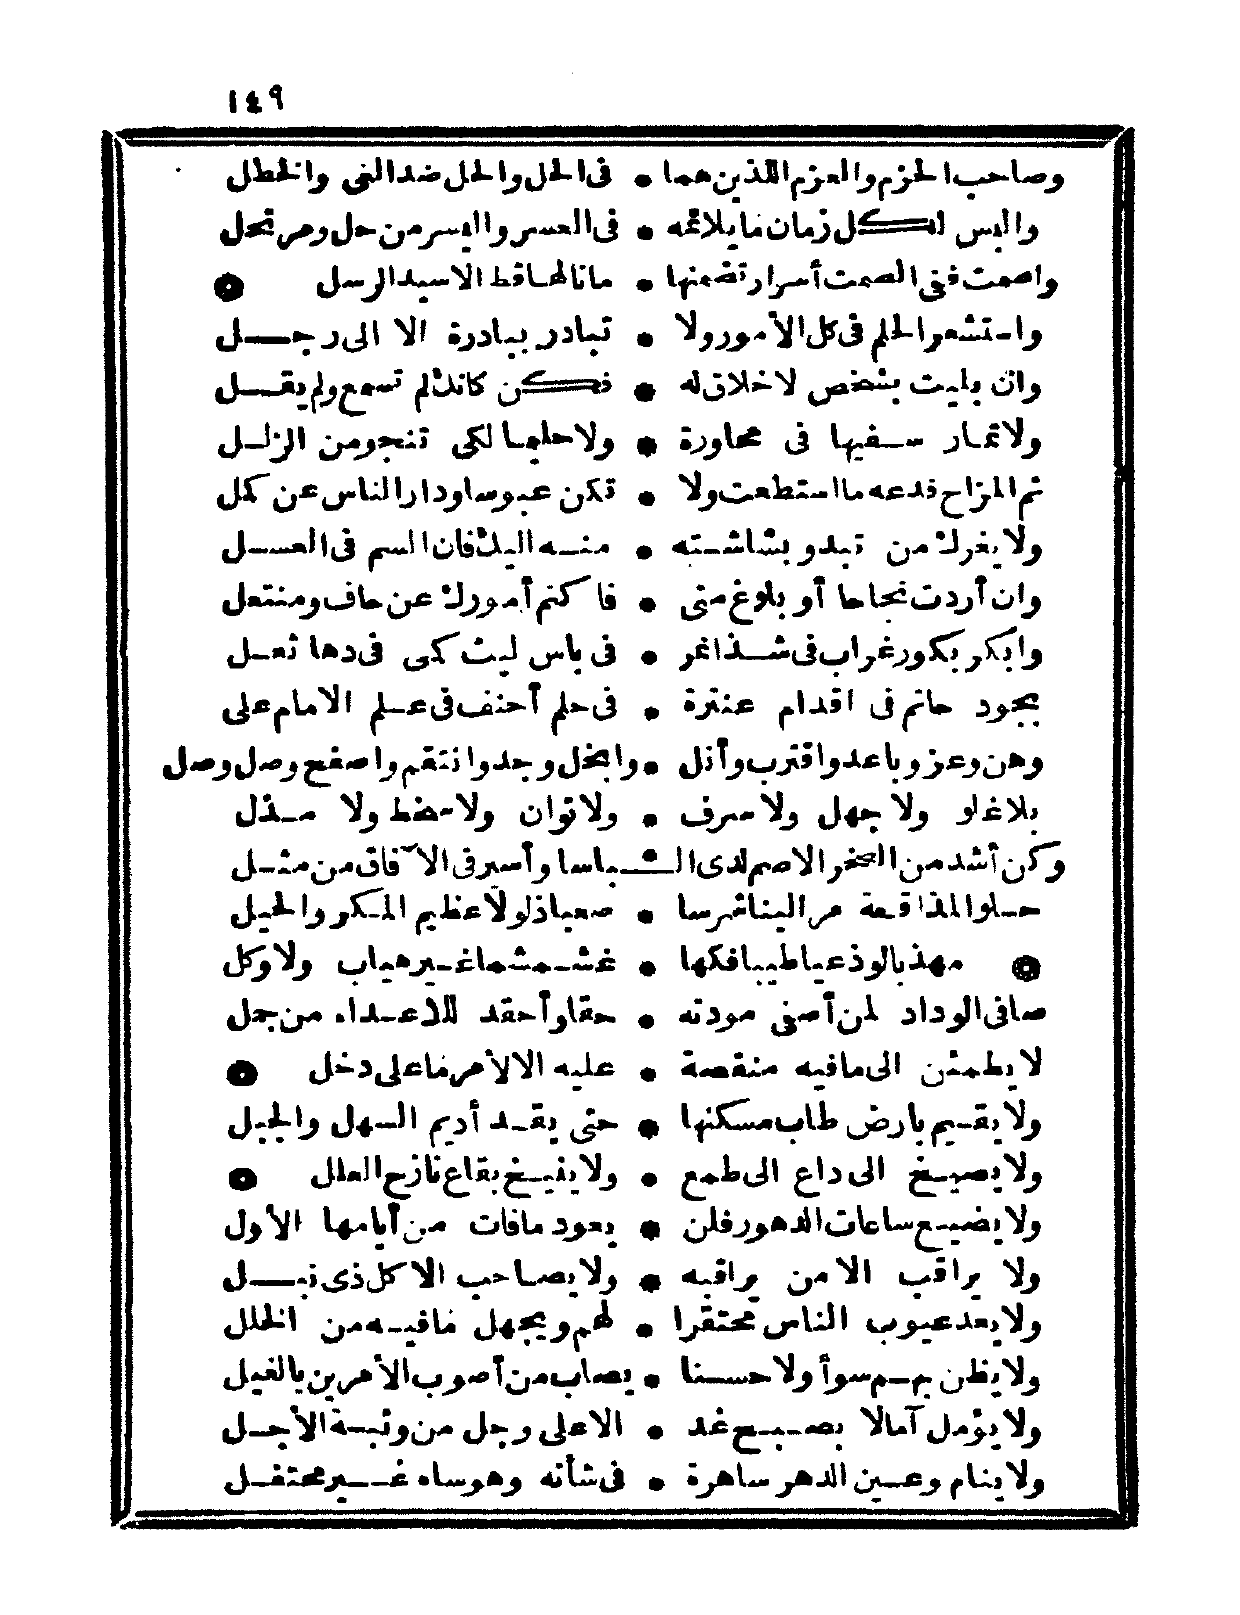 ١٤٩
وصاحب الحزم والعزم اللذين هما • فى الحل والحل ضد الغى والخطل
والبس لكل زمان ما يلائمه • فى العسر واليسر من حل ومر تحل
واصمت ففى الصمت أسرار تضمنها • ما نالها قط الا سيد الرسل
واستشعر الحلم فى كل الأمور ولا • تبادر ببادرة الا الى رجل
وان بليت بشخص لا خلاق له • فكن كانك لم تسمع ولم يقل
ولا تمار سفيها فى محاورة • ولا حليما لكى تنجو من الزلل
ثم المزاح فدعه ما استطعت ولا • تكن عبوسا ودار الناس عن كمل
ولا يغرك من تبدو بشاشته • منه اليك فان السم فى العسل
وان أردت نجاحا أو بلوغ منى • فاكتم أمورك عن حاف ومنتعل
وابكر بكور غراب فى شذا نمر • فى باس ليث كمى فى دها ثعل
بجود حاتم فى اقدام عنترة • فى حلم أحنف فى علم الامام على
وهن وعز وباعد واقترب وأنل • وابخل وجد وانتقم واصفح وصل وصل
بلا غلو ولا جهل ولا سرف • ولا توان ولا سخط ولا مذل
وكن أشد من الصخر الاصم لدى الـباسا وأسير فى الآفاق من مثل
حلو المذاقة مر الينا شرسا • صعبا ذلولا عظيم المكر والحيل
مهذبا لوذعيا طيبا فكها • غشمشما غير هياب ولا وكل
صافى الوداد لمن أصفى مودته • حقا وأحقد للاعداء من جمل
لا يطمئن الى ما فيه منقصة • عليه الا لأمر ما على دخل
ولا يقيم بارض طاب مسكنها • حتى يقد أديم السهل والجبل
ولا يصيخ الى داع الى طمع • ولا ينيخ بقاع نازح العلل
ولا يضيع ساعات الدهور فلن • يعود ما فات من أيامها الأول
ولا يراقب الا من يراقبه • ولا يصاحب الا كل ذى نبل
ولا يعد عيوب الناس محتقرا • لهم ويجهل ما فيه من الخلل
ولا يظن بهم سوأ ولا حسنا • يصاب من أصوب الأمرين بالغيل
ولا يؤمل آمالا بصبح غد • الا على وجل من وثبة الأجل
ولا ينام وعين الدهر ساهرة • فى شأنه وهو ساه غير محتفل